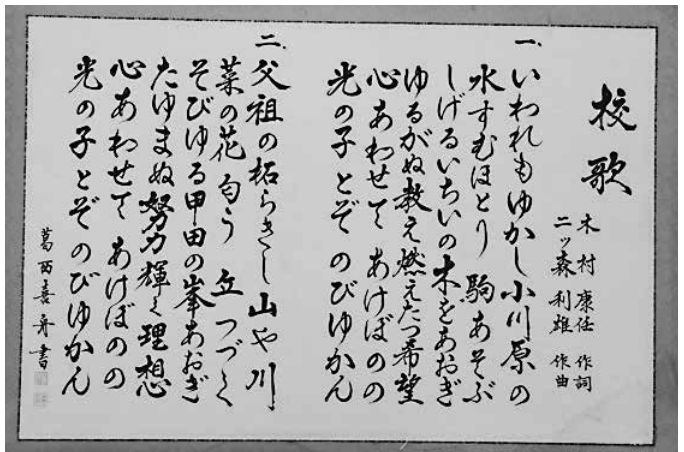 校歌
木村康任 作詞
二ッ森利雄 作曲
一、いわれもゆかし小川原の
水すむほとり 駒あそぶ
しげるいちいの木をあおぎ
ゆるがぬ教え燃えたつ希望
心あわせて あけぼのの
光の子とぞ のびゆかん
二、父祖の拓らきし山や川
菜の花匂う 丘つづく
そびゆる甲田の峯あおぎ
たゆまぬ努力輝く理想
心あわせて あけぼのの
光の子とぞ のびゆかん
葛西喜舟書